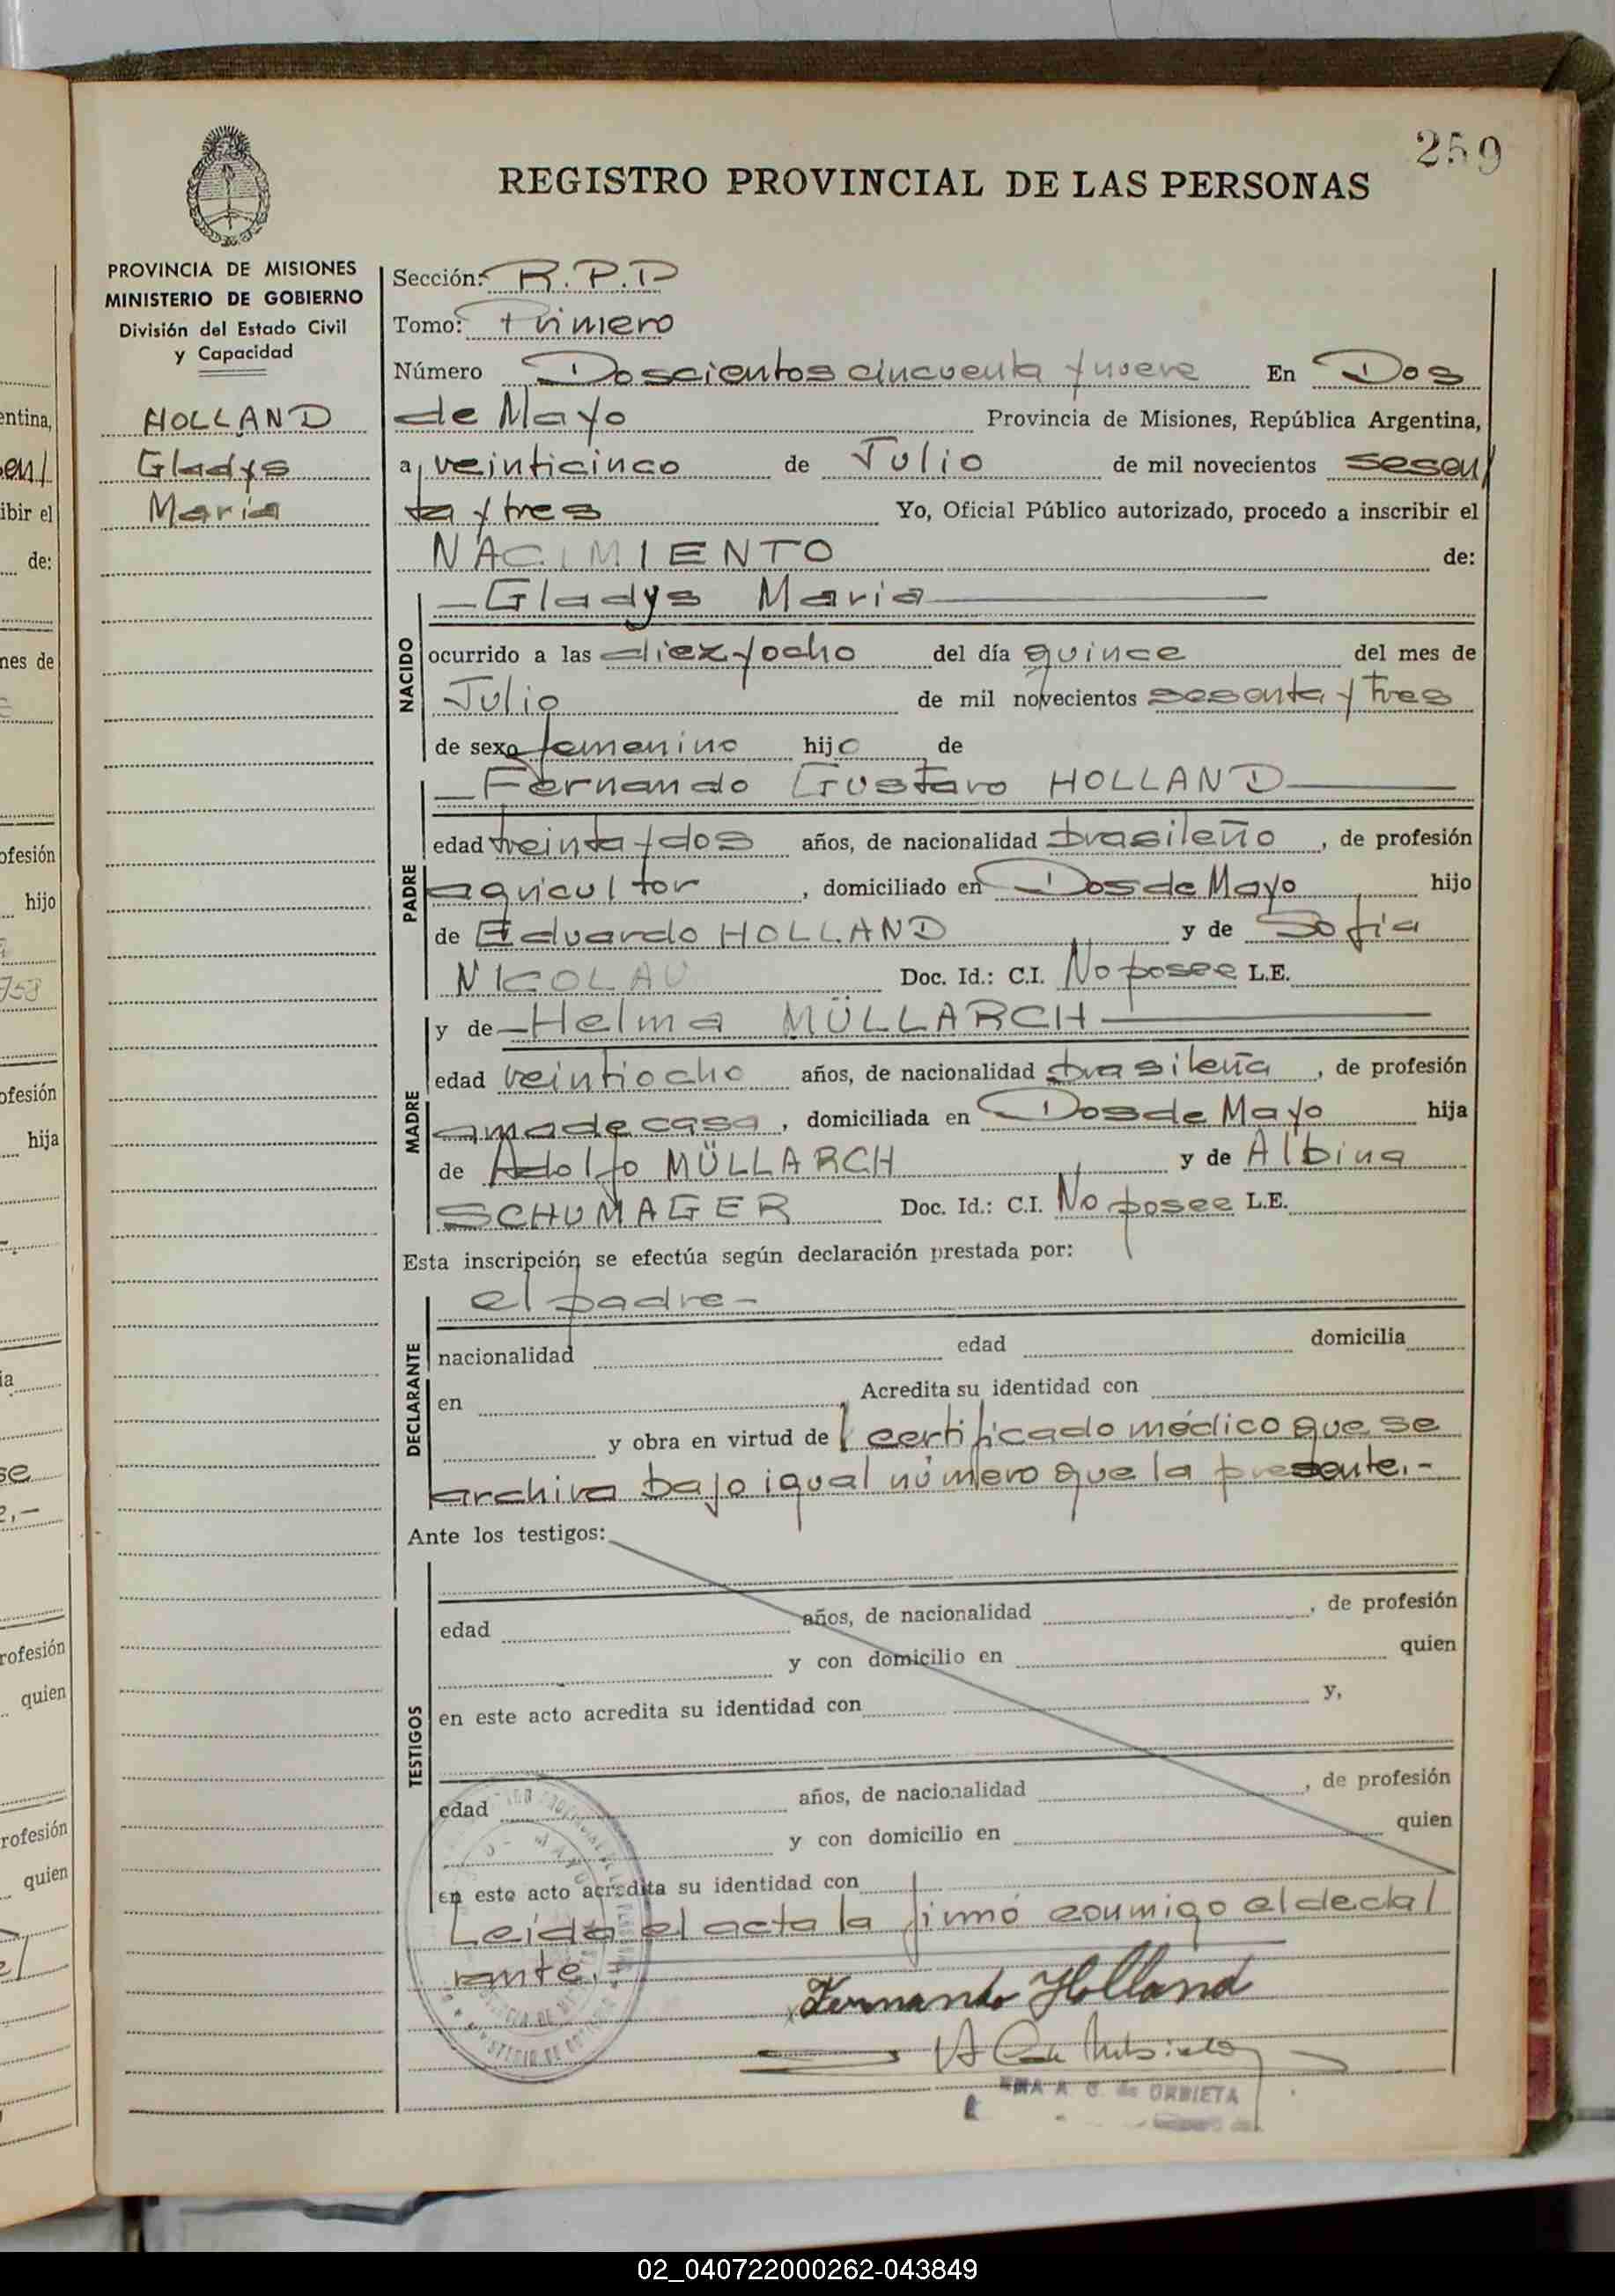 259
REGISTRO PROVINCIAL DE LAS PERSONAS
PROVINCIA DE MISIONES
MINISTERIO DE GOBIERNO
División del Estado Civil
y Capacidad
HOLLAND
Gladys
Maria
Sección: R.P.D
Tomo: Primero
Número Doscientos cincuenta y nueve En Dos
de Mayo Provincia de Misiones, República Argentina,
a veinticinco de Julio de mil novecientos sesen/
ta y tres Yo, Oficial Público autorizado, procedo a inscribir el
NACIMIENTO de:
NACIDO
— Gladys Maria —
ocurrido a las diez y ocho del día quince del mes de
Julio de mil novecientos sesenta y tres
de sexo femenino hijo de
PADRE
— Fernando Gustavo HOLLAND —
edad treinta y dos años, de nacionalidad brasileño, de profesión
agricultor, domiciliado en Dos de Mayo hijo
de Eduardo HOLLAND y de Sofia
NICOLAU Doc. Id.: C.I. No posee L.E.
MADRE
y de — Helma MÜLLARCH —
edad veintiocho años, de nacionalidad brasileña, de profesión
ama de casa, domiciliada en Dos de Mayo hija
de Adolfo MÜLLARCH y de Albina
SCHUMAGER Doc. Id.: C.I. No posee L.E.
Esta inscripción se efectúa según declaración prestada por:
DECLARANTE
el padre -
nacionalidad edad domicilia
en Acredita su identidad con
y obra en virtud del certificado médico que se
archiva bajo igual número que la presente.-
Ante los testigos:
TESTIGOS
edad años, de nacionalidad , de profesión
y con domicilio en quien
en este acto acredita su identidad con y,
edad años, de nacionalidad , de profesión
y con domicilio en quien
en este acto acredita su identidad con
Leída el acta la firmó conmigo el decla/
rante.
Fernando Holland
A. C. de URBIETA
02_040722000262-043849